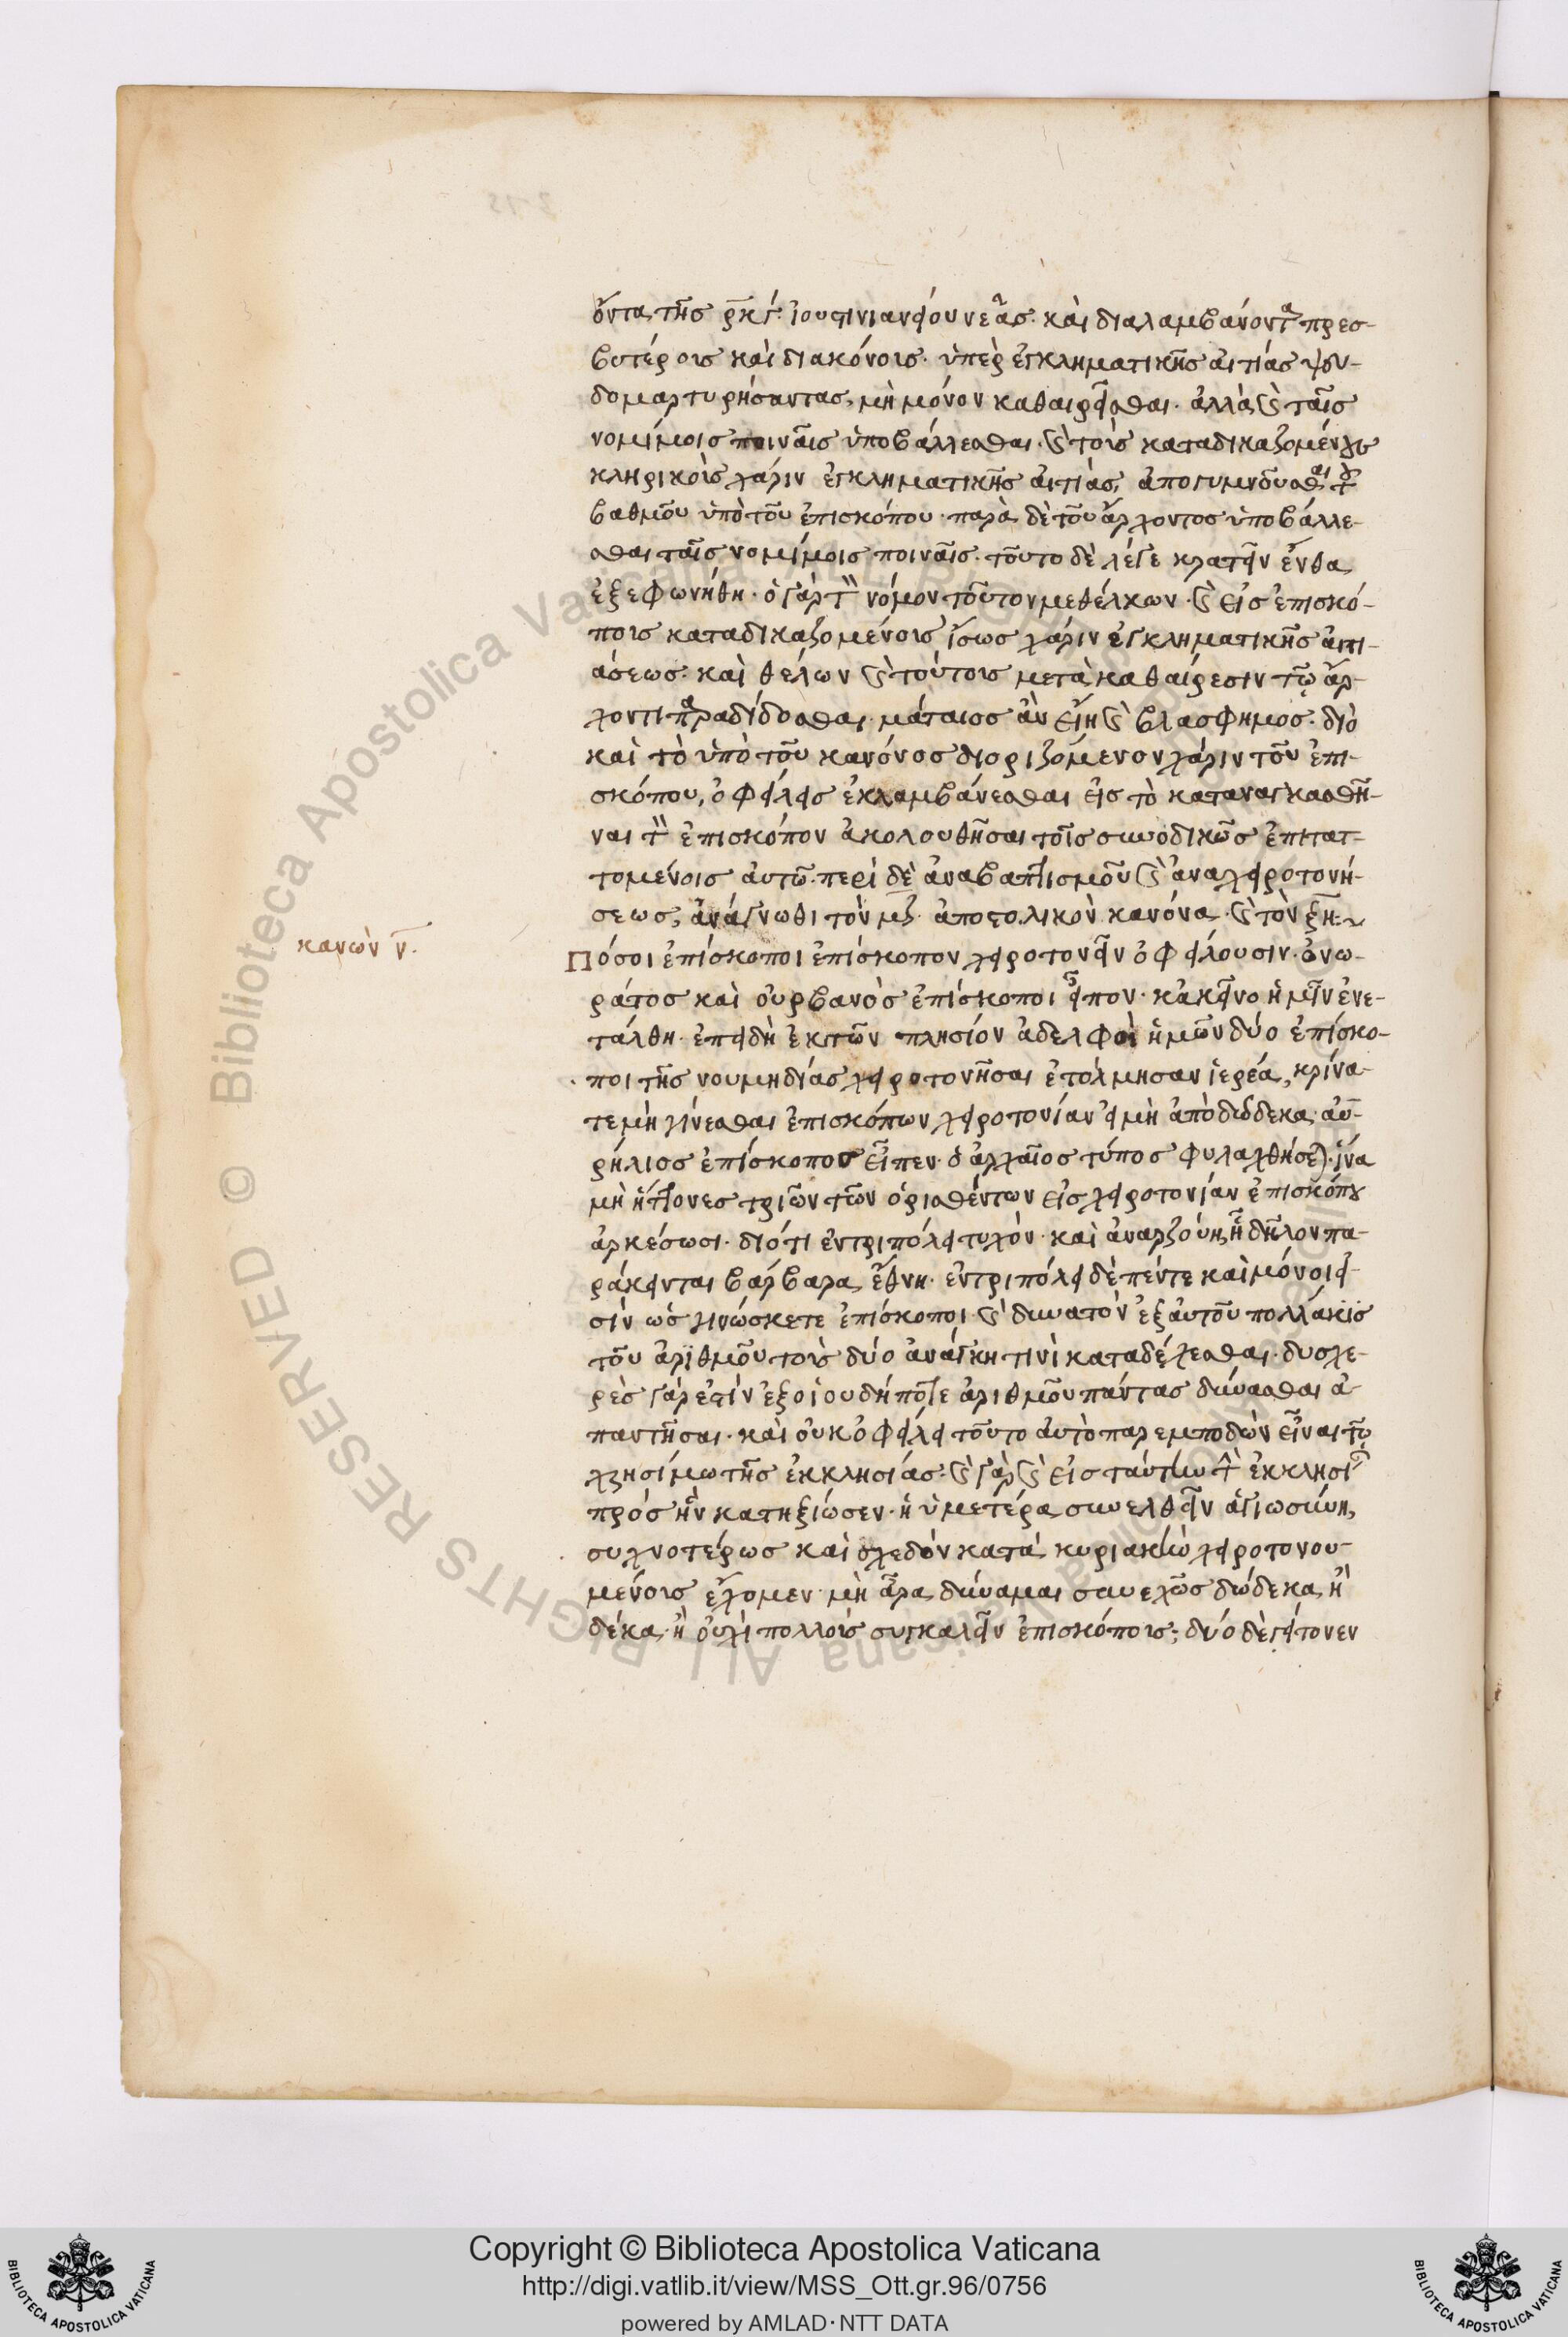 ὄντα τῆς ρκγ. ἰουστινιανείου νεαρᾶς. καὶ διαλαμβάνοντα πρεσ-
βυτέρους καὶ διακόνους. ὑπὲρ ἐγκληματικῆς αἰτίας ψευ-
δομαρτυρήσαντας, μὴ μόνον καθαιρεῖσθαι. ἀλλὰ καὶ ταῖς
νομίμοις ποιναῖς ὑποβάλλεσθαι. καὶ τοὺς καταδικαζομένους
κληρικοὺς χάριν ἐγκληματικῆς αἰτίας, ἀπογυμνοῦσθαι τοῦ
βαθμοῦ ὑπὸ τοῦ ἐπισκόπου. παρὰ δὲ τοῦ ἄρχοντος ὑποβάλλε-
σθαι ταῖς νομίμοις ποιναῖς. τοῦτο δὲ λέγε κρατεῖν ἔνθα
ἐξεφωνήθη. ὁ γὰρ τὸν νόμον τοῦτον μεθέλκων. καὶ εἰς ἐπισκό-
πους καταδικαζομένους ἴσως χάριν ἐγκληματικῆς αἰτι-
άσεως. καὶ θέλων καὶ τούτους μετὰ καθαίρεσιν τῷ ἄρ-
χοντι παραδίδοσθαι. μάταιος ἂν εἴη καὶ βλάσφημος. διὸ
καὶ τὸ ὑπὸ τοῦ κανόνος διοριζόμενον χάριν τοῦ ἐπι-
σκόπου, ὀφείλεις ἐκλαμβάνεσθαι εἰς τὸ καταναγκασθῆ-
ναι τὸν ἐπισκόπον ἀκολουθῆσαι τοῖς συνοδικῶς ἐπιτατ-
τομένοις αὐτῷ. περὶ δὲ ἀναβαπτισμοῦ καὶ ἀναχειροτονή-
σεως, ἀνάγνωθι τὸν μζ. ἀποστολικὸν κανόνα. καὶ τὸν ξη.
κανὼν ν.
Πόσοι ἐπίσκοποι ἐπίσκοπον χειροτονεῖν ὀφείλουσιν. ὀνω-
ράτος καὶ οὐρβανὸς ἐπίσκοποι εἶπον. κἀκεῖνο ἡμῖν ἐνε-
τάλθη. ἐπειδὴ ἐκ τῶν πλησίον ἀδελφοὶ ἡμῶν δύο ἐπίσκο-
ποι τῆς νουμηδίας χειροτονῆσαι ἐτόλμησαν ἱερέα, κρίνα-
τε μὴ γίνεσθαι ἐπισκόπων χειροτονίαν εἰ μὴ ἀπὸ δώδεκα. αὐ-
ρήλιος ἐπίσκοπος εἶπεν. ὁ ἀρχαῖος τύπος φυλαχθήσεται. ἵνα
μὴ ἥττονες τριῶν τῶν ὁρισθέντων εἰς χειροτονίαν ἐπισκόπου
ἀρκέσωσι. διότι ἐν τριπόλει τυχὸν. καὶ ἀναρζούη, ἢ δῆλον πα-
ράκεινται βάρβαρα ἔθνη. ἐν τριπόλει δὲ πέντε καὶ μόνοι εἰ-
σὶν ὡς γινώσκετε ἐπίσκοποι. καὶ δυνατὸν ἐξ αὐτοῦ πολλάκις
τοῦ ἀριθμοῦ τοὺς δύο ἀνάγκῃ τινὶ καταδέχεσθαι. δυσχε-
ρὲς γάρ ἐστιν ἐξ οἱουδήποτε ἀριθμοῦ πάντας δύνασθαι ἀ-
παντῆσαι. καὶ οὐκ ὀφείλει τοῦτο αὐτὸ παρεμποδὼν εἶναι τῷ
χρησίμω τῆς ἐκκλησίας. καὶ γὰρ καὶ εἰς ταύτην τὴν ἐκκλησίαν
πρὸς ἣν κατηξίωσεν. ἡ ὑμετέρα συνελθεῖν ἁγιωσύνη,
συχνοτέρως καὶ σχεδὸν κατὰ κυριακὴν χειροτονου-
μένους ἔχομεν. μὴ ἄρα δύναμαι συνεχῶς δώδεκα, ἢ
δέκα. ἢ οὐχὶ πολλοὺς συγκαλεῖν ἐπισκόπους; δύο δὲ γείτονεν
Copyright © Biblioteca Apostolica Vaticana
http://digi.vatlib.it/view/MSS_Ott.gr.96/0756
powered by AMLAD·NTT DATA